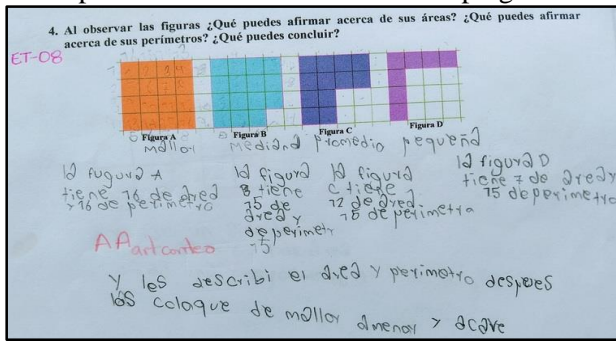 4. Al observar las figuras ¿Qué puedes afirmar acerca de sus áreas? ¿Qué puedes afirmar
acerca de sus perímetros? ¿Qué puedes concluir?
ET-08
Figura A
Figura B
Figura C
Figura D
mallor
mediana
promedio
pequeña
la fugura A
tiene 16 de area
y 16 de perimetro
la figura
B tiene
15 de
area y
de perimetr
15
la figura
C tiene
12 de area.
de perimetra
la figura D
tiene 7 de area y
15 de perimetro
AA
y les describi el area y perimetro despues
los coloque de mallor amenor y acave